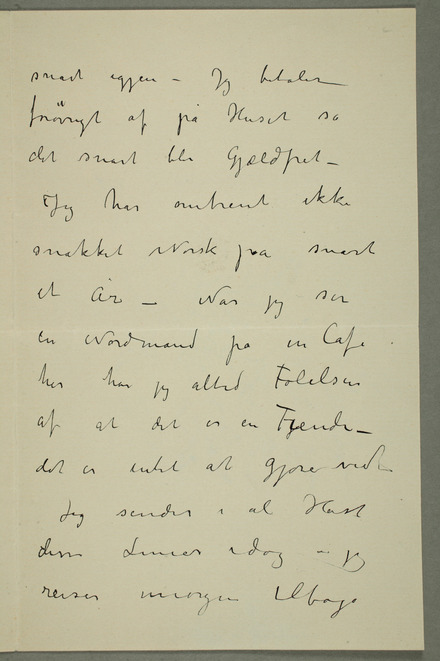 snart igjen – Jeg betaler
forövrigt af på Huset so
det snart bli Gjældfrit –
Jeg har omtrent ikke
snakket Norsk på snart
et År – Når jeg ser
en Nordmand på en Café
her har jeg altid Følelsen
af at det er en Fjende –
det er intet at gjøre ved
Jeg sender i al Hast
disse Linier idag – jeg
reiser imorgen tilbage